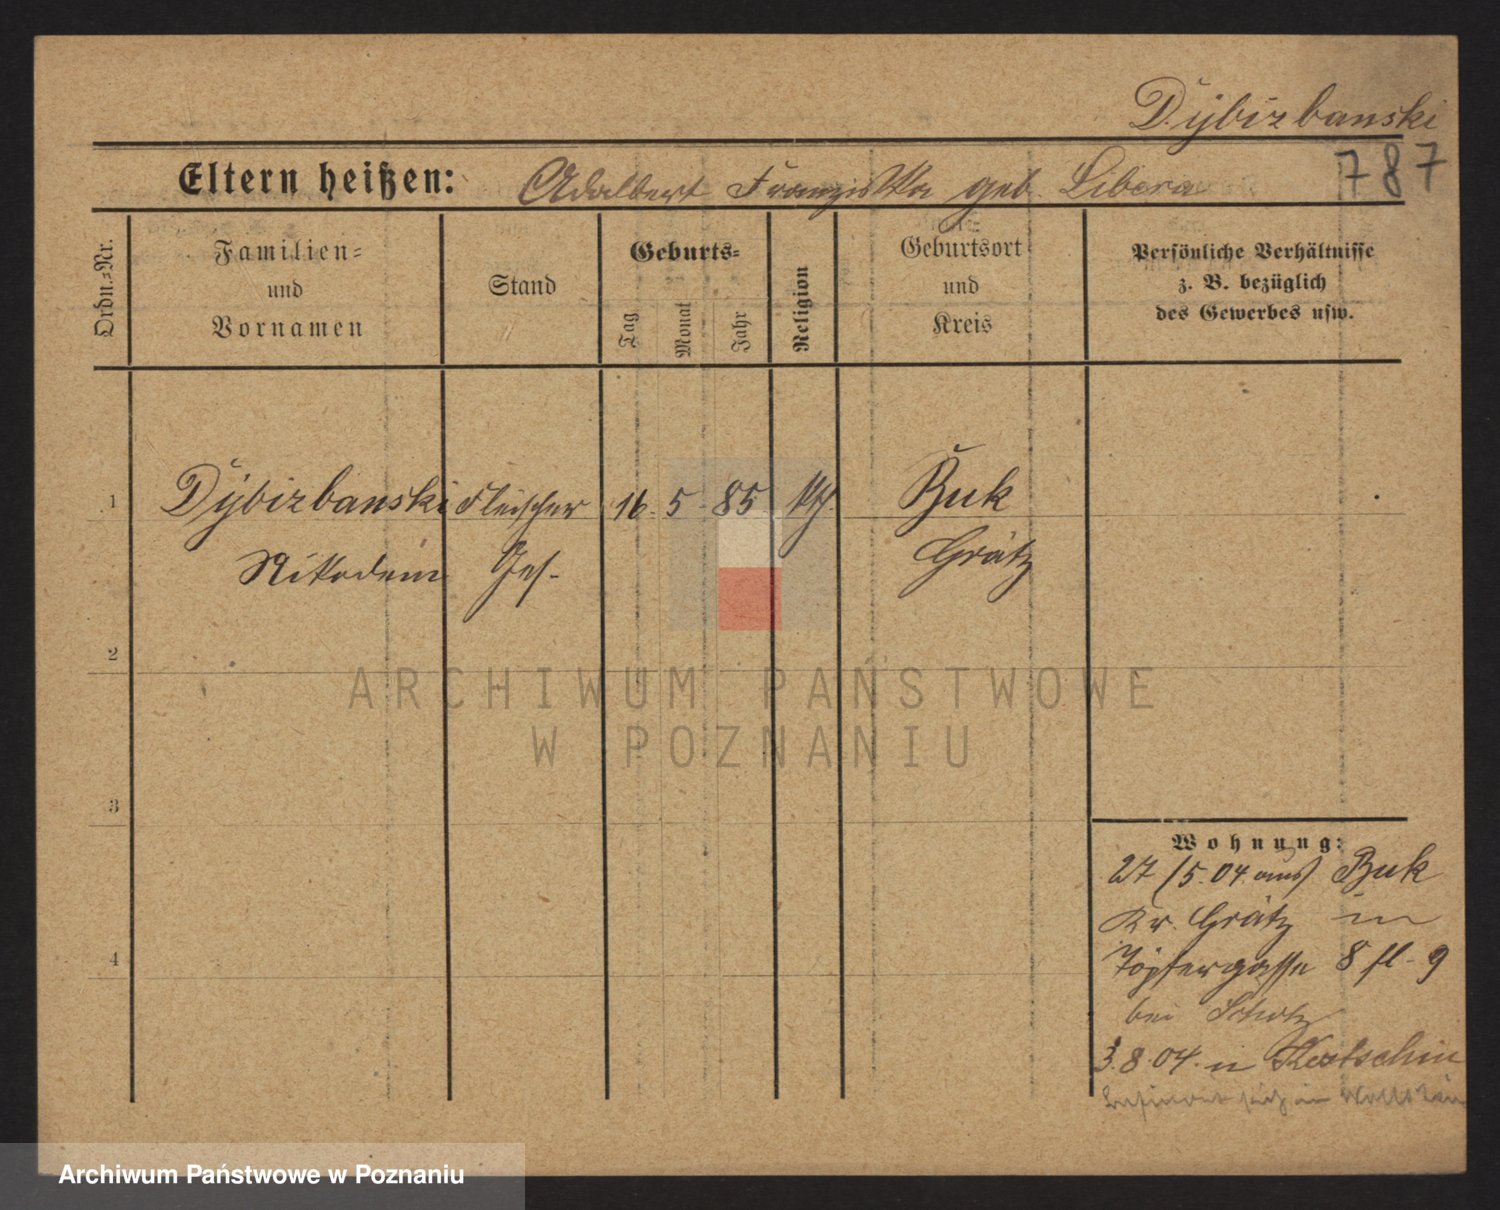 Dÿbizbanski
787
Eltern heißen: Adalbert Franziska geb. Libera
Ordn.-Nr.
Familien-
und
Vornamen
Stand
Geburts-
Tag
Monat
Jahr
Religion
Geburtsort
und
Kreis
Persönliche Verhältnisse
z. B. bezüglich
des Gewerbes usw.
1 Dÿbizbanski Fleischer 16. 5. 85 kth. Buk
Nikodem Ges. Grätz
2
ARCHIWUM PAŃSTWOWE
W POZNANIU
3
Wohnung:
27/5.04. aus Buk
Kr. Grätz in
4
Töpfergasse 8 fl. 9
bei
3.8.04. n Kostschin
befindet sich in
Archiwum Państwowe w Poznaniu